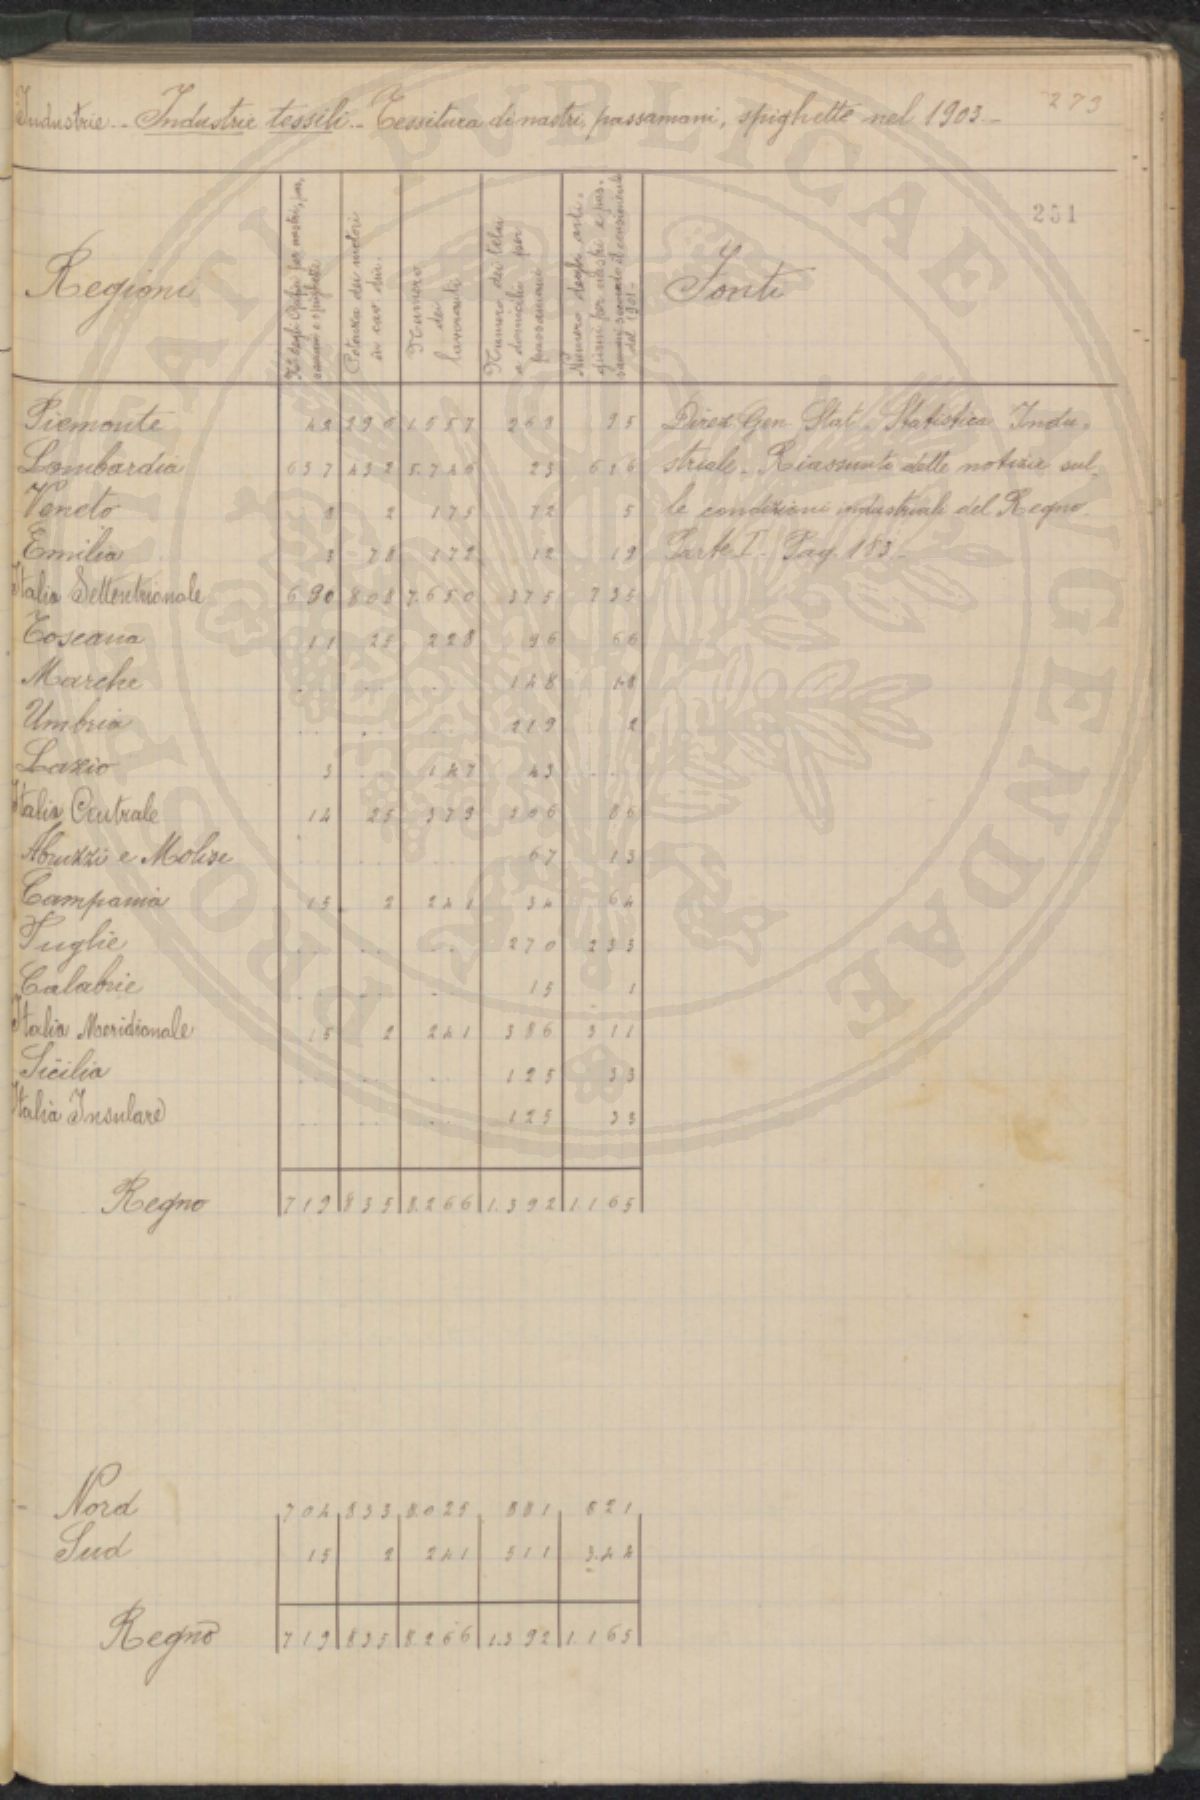 273
Industrie -- Industrie tessili -- Tessitura di nastri, passamani, spighette nel 1903 --
261
Regioni
N.o degli Opifici per nastri, pas-
samani e spighette
Potenza dei motori
in cav. din.
Numero
dei
lavoranti
Numero dei telai
a domicilio per
passamani
Numero degli arti-
giani per nastri e pas-
samani secondo il censimento
del 1901 -
Fonti
Piemonte 42 296 1.557 268 95
Lombardia 637 432 5.746 23 616
Veneto 8 2 175 72 5
Emilia 3 78 172 12 19
Italia Settentrionale 690 808 7.650 375 735
Toscana 11 25 228 96 66
Marche .. .. .. 148 18
Umbria .. .. .. 219 2
Lazio 3 .. 147 43 ..
Italia Centrale 14 25 375 506 86
Abruzzi e Molise .. .. .. 67 13
Campania 15 2 241 34 64
Puglie .. .. .. 270 233
Calabrie .. .. .. 15 1
Italia Meridionale 15 2 241 386 311
Sicilia .. .. .. 125 33
Italia Insulare .. .. .. 125 33
Regno 719 835 8.266 1.392 1.165
Direz. Gen. Stat. Statistica Indu-
striale - Riassunto delle notizie sul-
le condizioni industriali del Regno
Parte I - Pag. 183 -
Nord 704 833 8.025 881 821
Sud 15 2 241 511 344
Regno 719 835 8.266 1.392 1.165